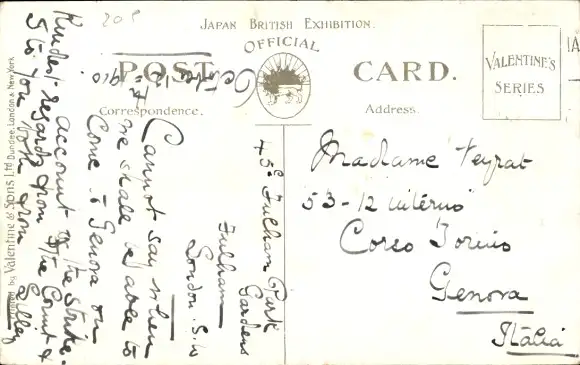 JAPAN BRITISH EXHIBITION.
OFFICIAL
POST CARD.
Correspondence.
Address.
VALENTINE'S
SERIES
by Valentine & Sons Ltd Dundee, London & New York
208
45c Fulham Park
Gardens
Fulham
London. S.W
Oct. 12th 1910
Cannot say when
we shall be able to
come to Genova on
account of the strike.
Kindest regards from the Count &
S to you both from Lilley
Madame Teyrat
53-12 interno
Corso Torino
Genova
Italia